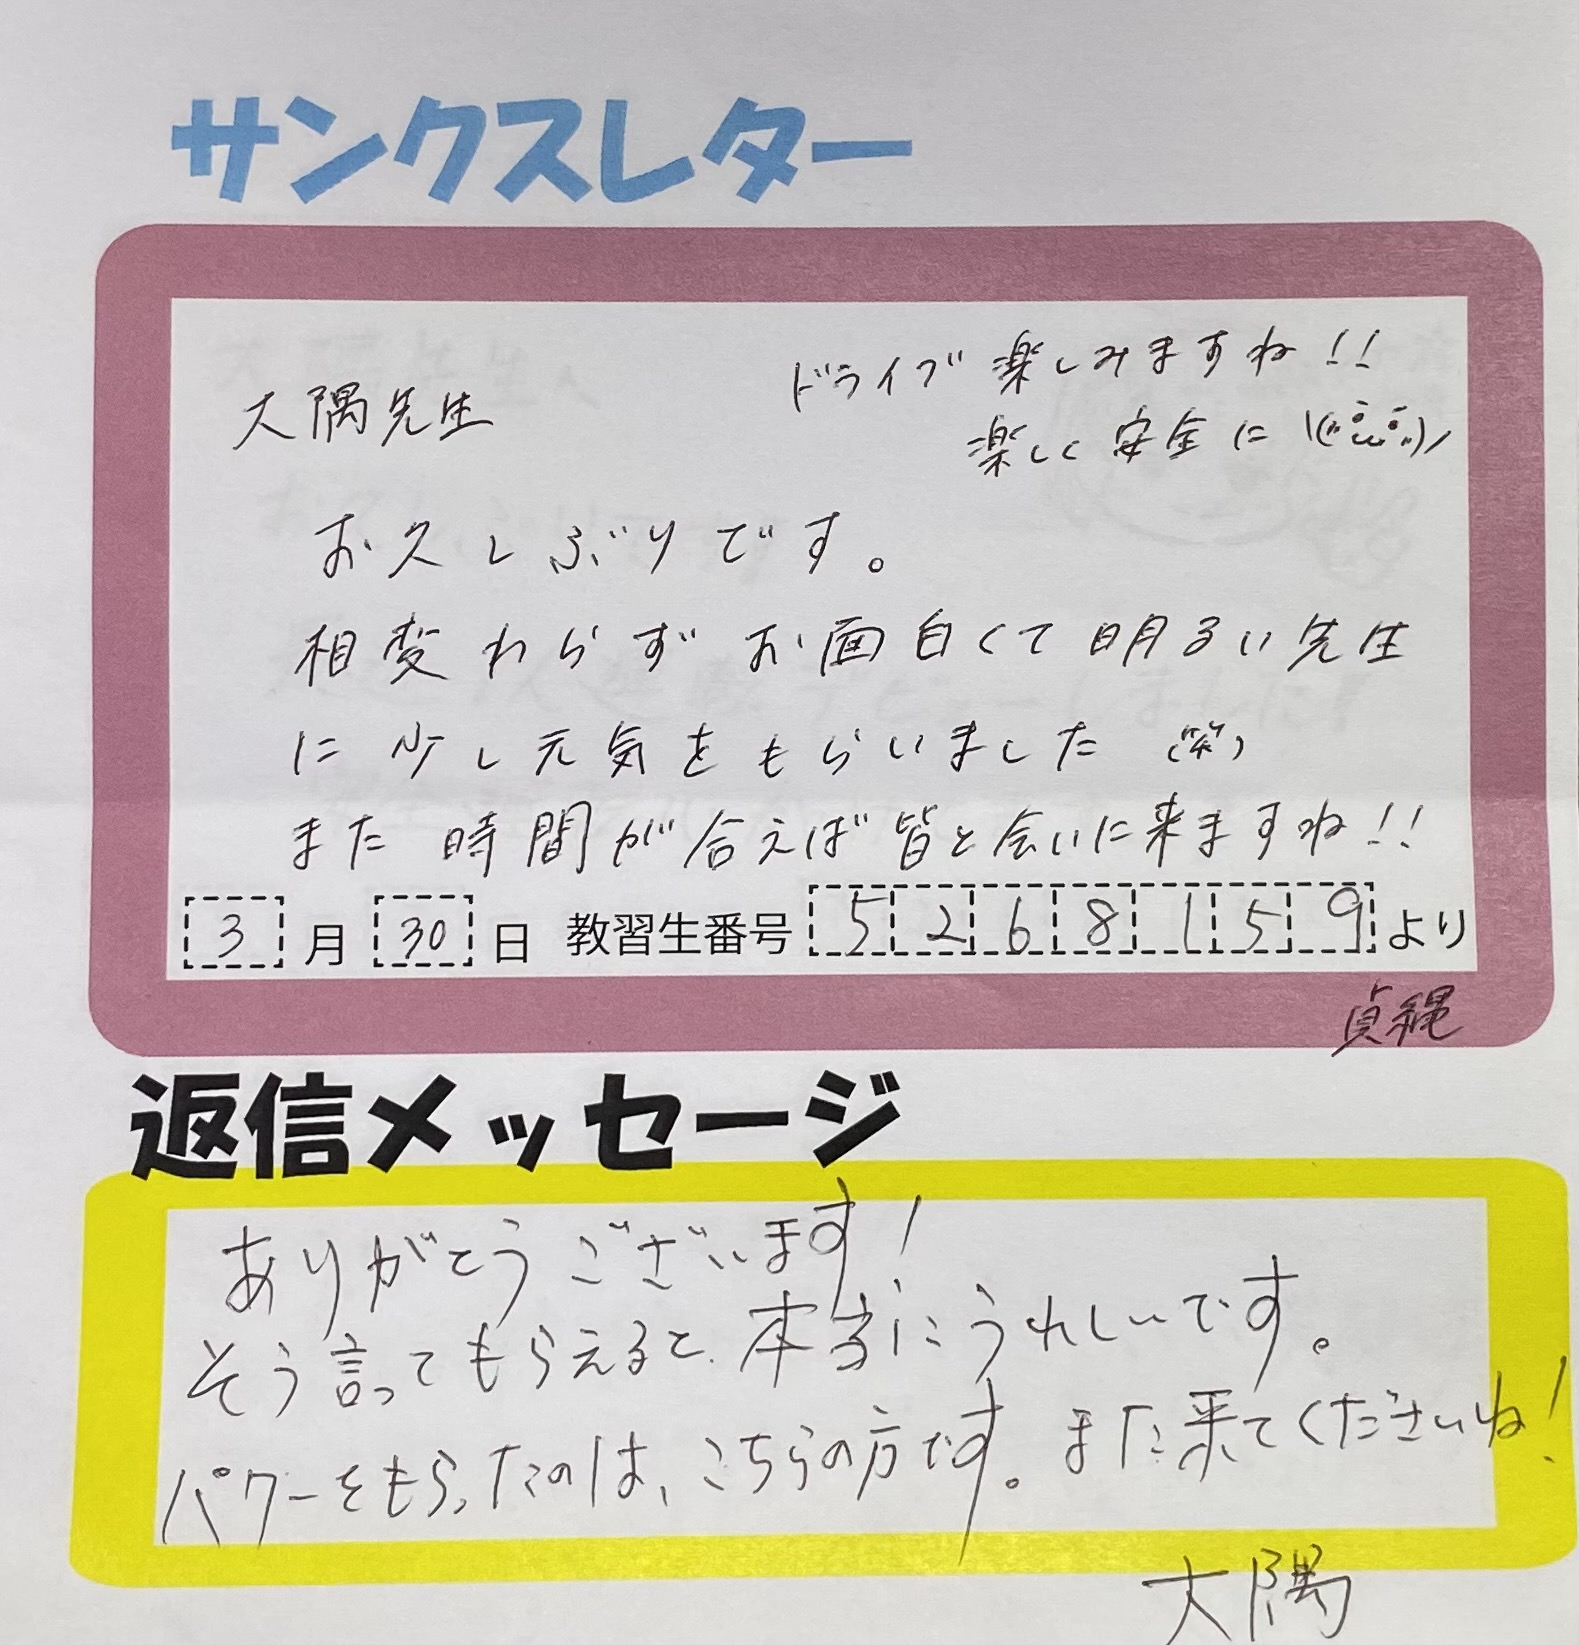 サンクスレター
大隅先生
ドライブ楽しみますね!!
楽しく安全に
お久しぶりです。
相変わらずお面白くて明るい先生
に少し元気をもらいました(笑)
また時間が合えば皆と会いに来ますね!!
3月30日 教習生番号 5268159より
貞縄
返信メッセージ
ありがとうございます!
そう言ってもらえると、本当にうれしいです。
パワーをもらったのは、こちらの方です。また来てくださいね!
大隅